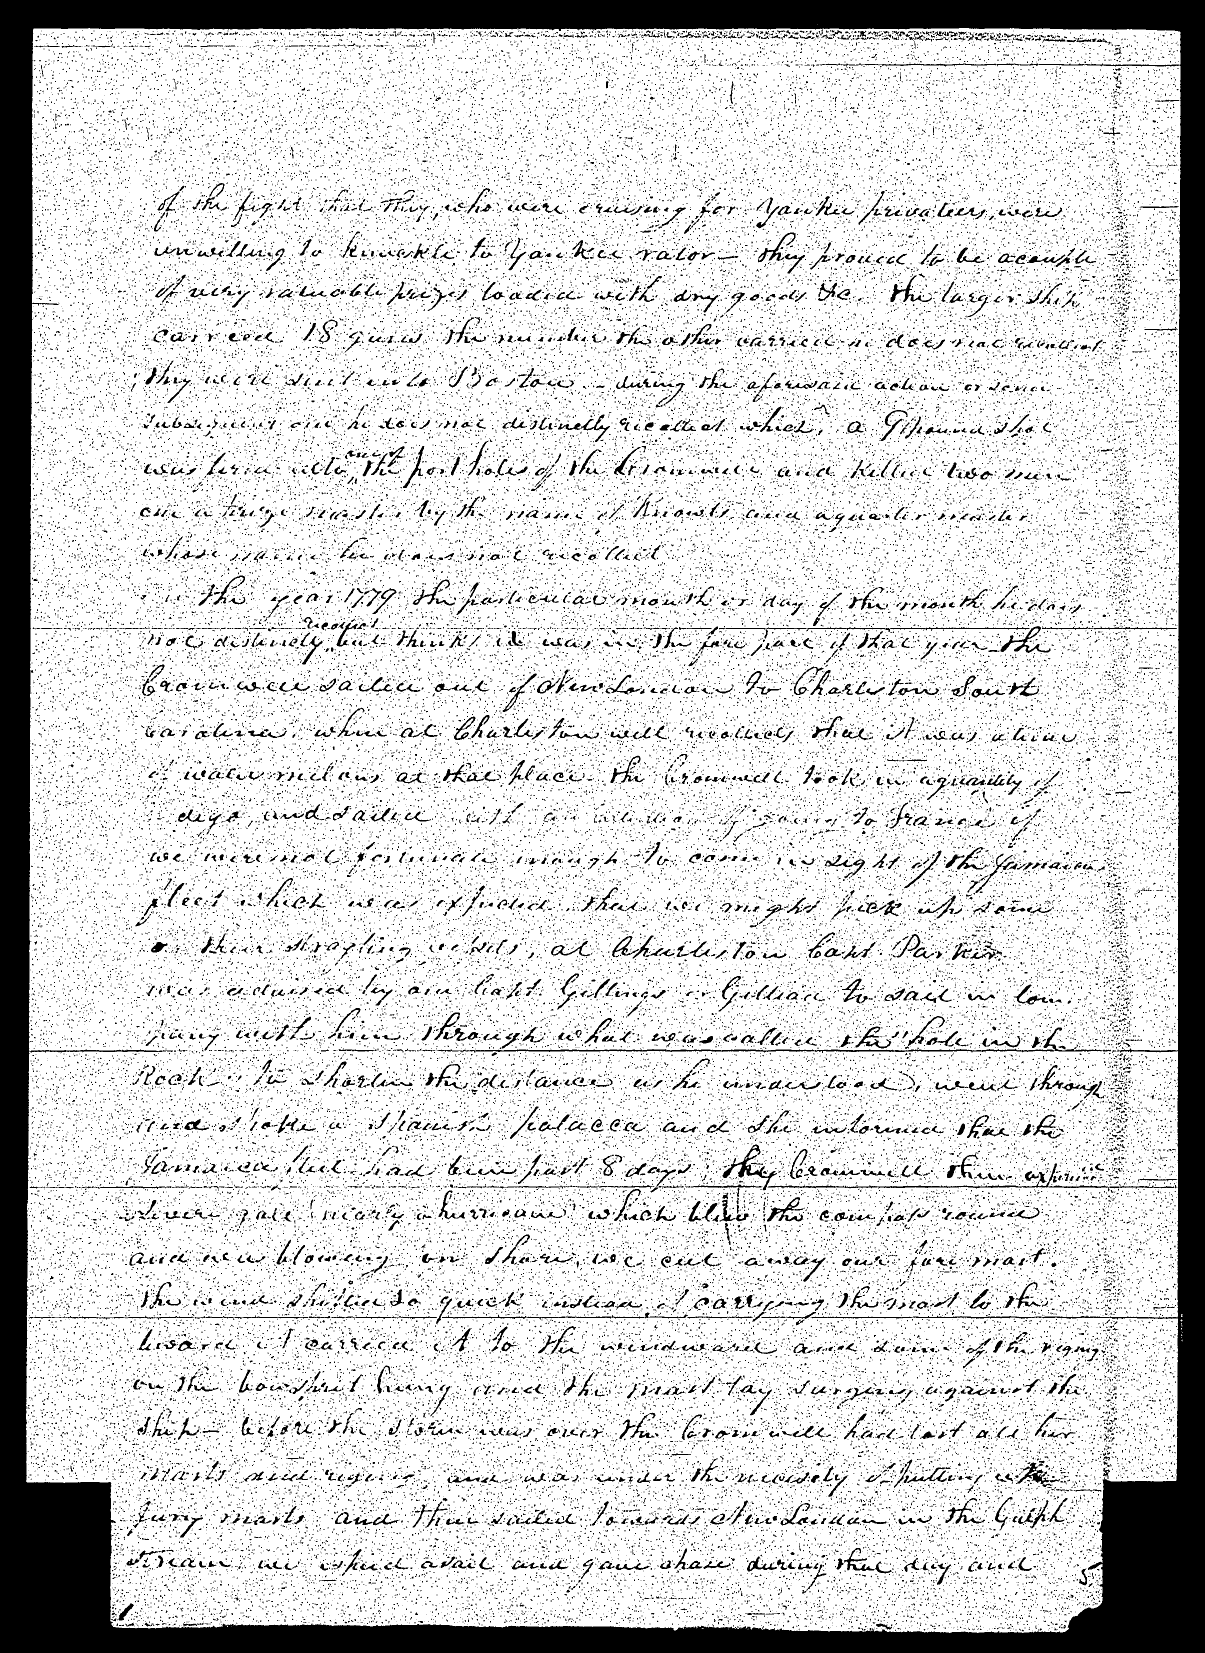 of the fight that they, who were cruising for Yankee privateers, were
unwilling to knuckle to Yankee valor — they proved to be a couple
of very valuable prizes loaded with dry goods &c. the larger ship
carried 18 guns the number the other carried he does not recollect
they were sent into Boston — during the aforesaid action or some
subsequent one he does not distinctly recollect which, a 9 pound shot
was fired into one of the port holes of the Cromwell and killed two men
one a prize master by the name of Knowls and a quarter master
whose name he does not recollect
in the year 1779 the particular month or day of the month he does
not distinctly recollect but thinks it was in the fore part of that year the
Cromwell sailed out of New London to Charleston South
Carolina. when at Charleston well recollects that it was a time
of water melons at that place the Cromwell took in a quantity of
digo, and sailed with an intention of going to France if
we were not fortunate enough to come in sight of the Jamaica
fleet which was expected that we might pick up some
of their stragling vessels, at Charleston Capt Parker
was advised by one Capt Gillings or Gillead to sail in com
pany with him through what was called the "hole in the
Rock" to shorten the distance as he understood, went through
and spoke a Spanish palacca and she informed that the
Jamaica fleet had been past 8 days, they Cromwell then experienced
severe gale nearly a hurricane which blew the compass round
and was blowing on shore, we cut away our fore mast.
the wind shifted so quick instead of carrying the mast to the
leward it carried it to the windward and some of the riging
on the bowsprit hung and the mast lay surging against the
ship — before the storm was over the Cromwell had lost all her
masts and riging and was under the necessity of putting up
Jury masts and then sailed towards New London in the Gulph
stream we espied a sail and gave chase during that day and
5